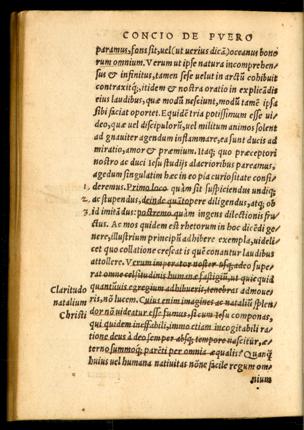 CONCIO DE PVERO
paramus, fons sit, uel (ut uerius dicā) oceanus bono
rum omnium. Verum ut ipse natura incomprehen
sus & infinitus, tamen sese uelut in arctū cohibuit
contraxitq;, itidem & nostra oratio in explicādis
eius laudibus, quæ modū nesciunt, modū tamē ipsa
sibi faciat oportet. Equidē tria potissimum esse ui-
deo, quæ uel discipulorū, uel militum animos solent
ad gnauiter agendum inflammare, ea sunt ducis ad
miratio, amor & præmium. Itaq; quo præceptori
nostro ac duci Iesu studijs alacrioribus pareamus,
agedum singulatim hæc in eo pia curiositate consi-
1. deremus. Primo loco quàm sit suspiciendus undiq;
2. ac stupendus, deinde quātopere diligendus, atq; ob
3. id imitādus: postremo quàm ingens dilectionis fru-
ctus. Ac mos quidem est rhetorum in hoc dicēdi ge-
nere, illustrium principū adhibere exempla, uideli-
cet quo collatione crescat is quē conantur laudibus
attollere. Verum imperator noster usq; adeo supe-
rat omne celsitudinis humanæ fastigiū, ut quicquid
quantūuis egregium adhibueris, tenebras admoue
Claritudo
ris, nō lucem. Cuius enim imagines ac nataliū splen-
natalium
dor nō uideatur esse fumus, si cum Iesu componas,
Christi
qui quidem ineffabili, immo etiam incogitabili ra-
tione deus à deo semper absq; tempore nascitur, æ-
terno summoq; parēti per omnia æqualis? Quanq̃
huius uel humana natiuitas nōne facile regum om-
nium